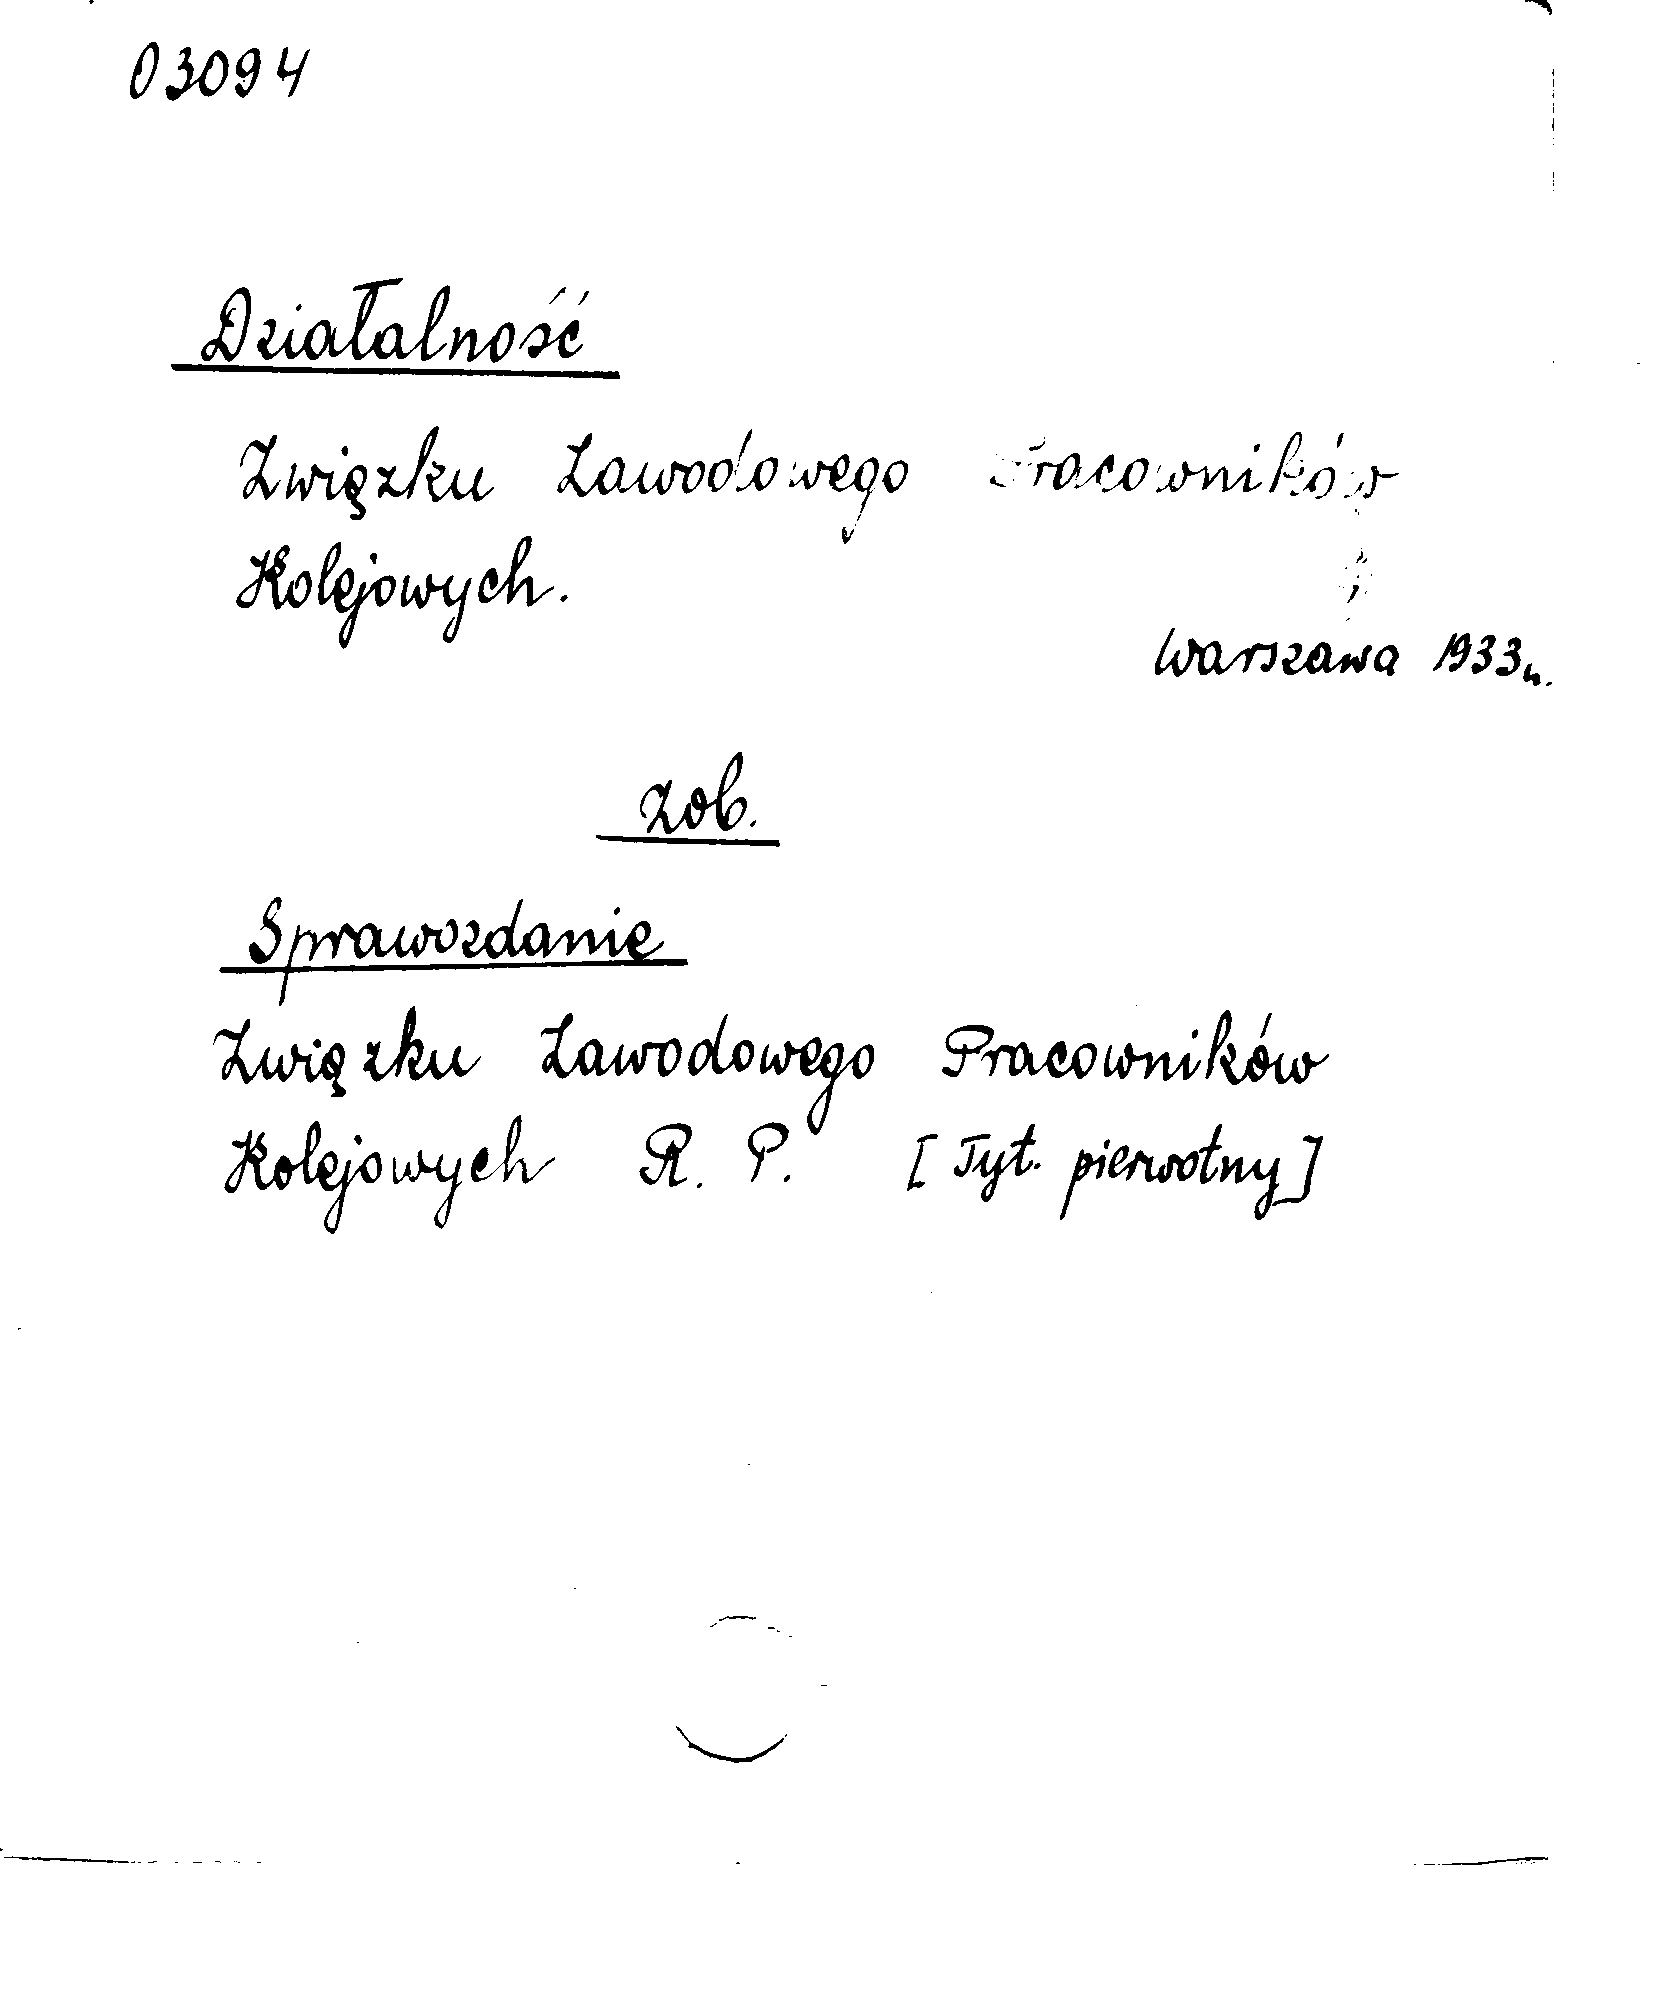 03094
Działalność
Związku Zawodowego Pracowników
Kolejowych.
Warszawa 1933r.
zob.
Sprawozdanie
Związku Zawodowego Pracowników
Kolejowych R. P. [Tyt. pierwotny]